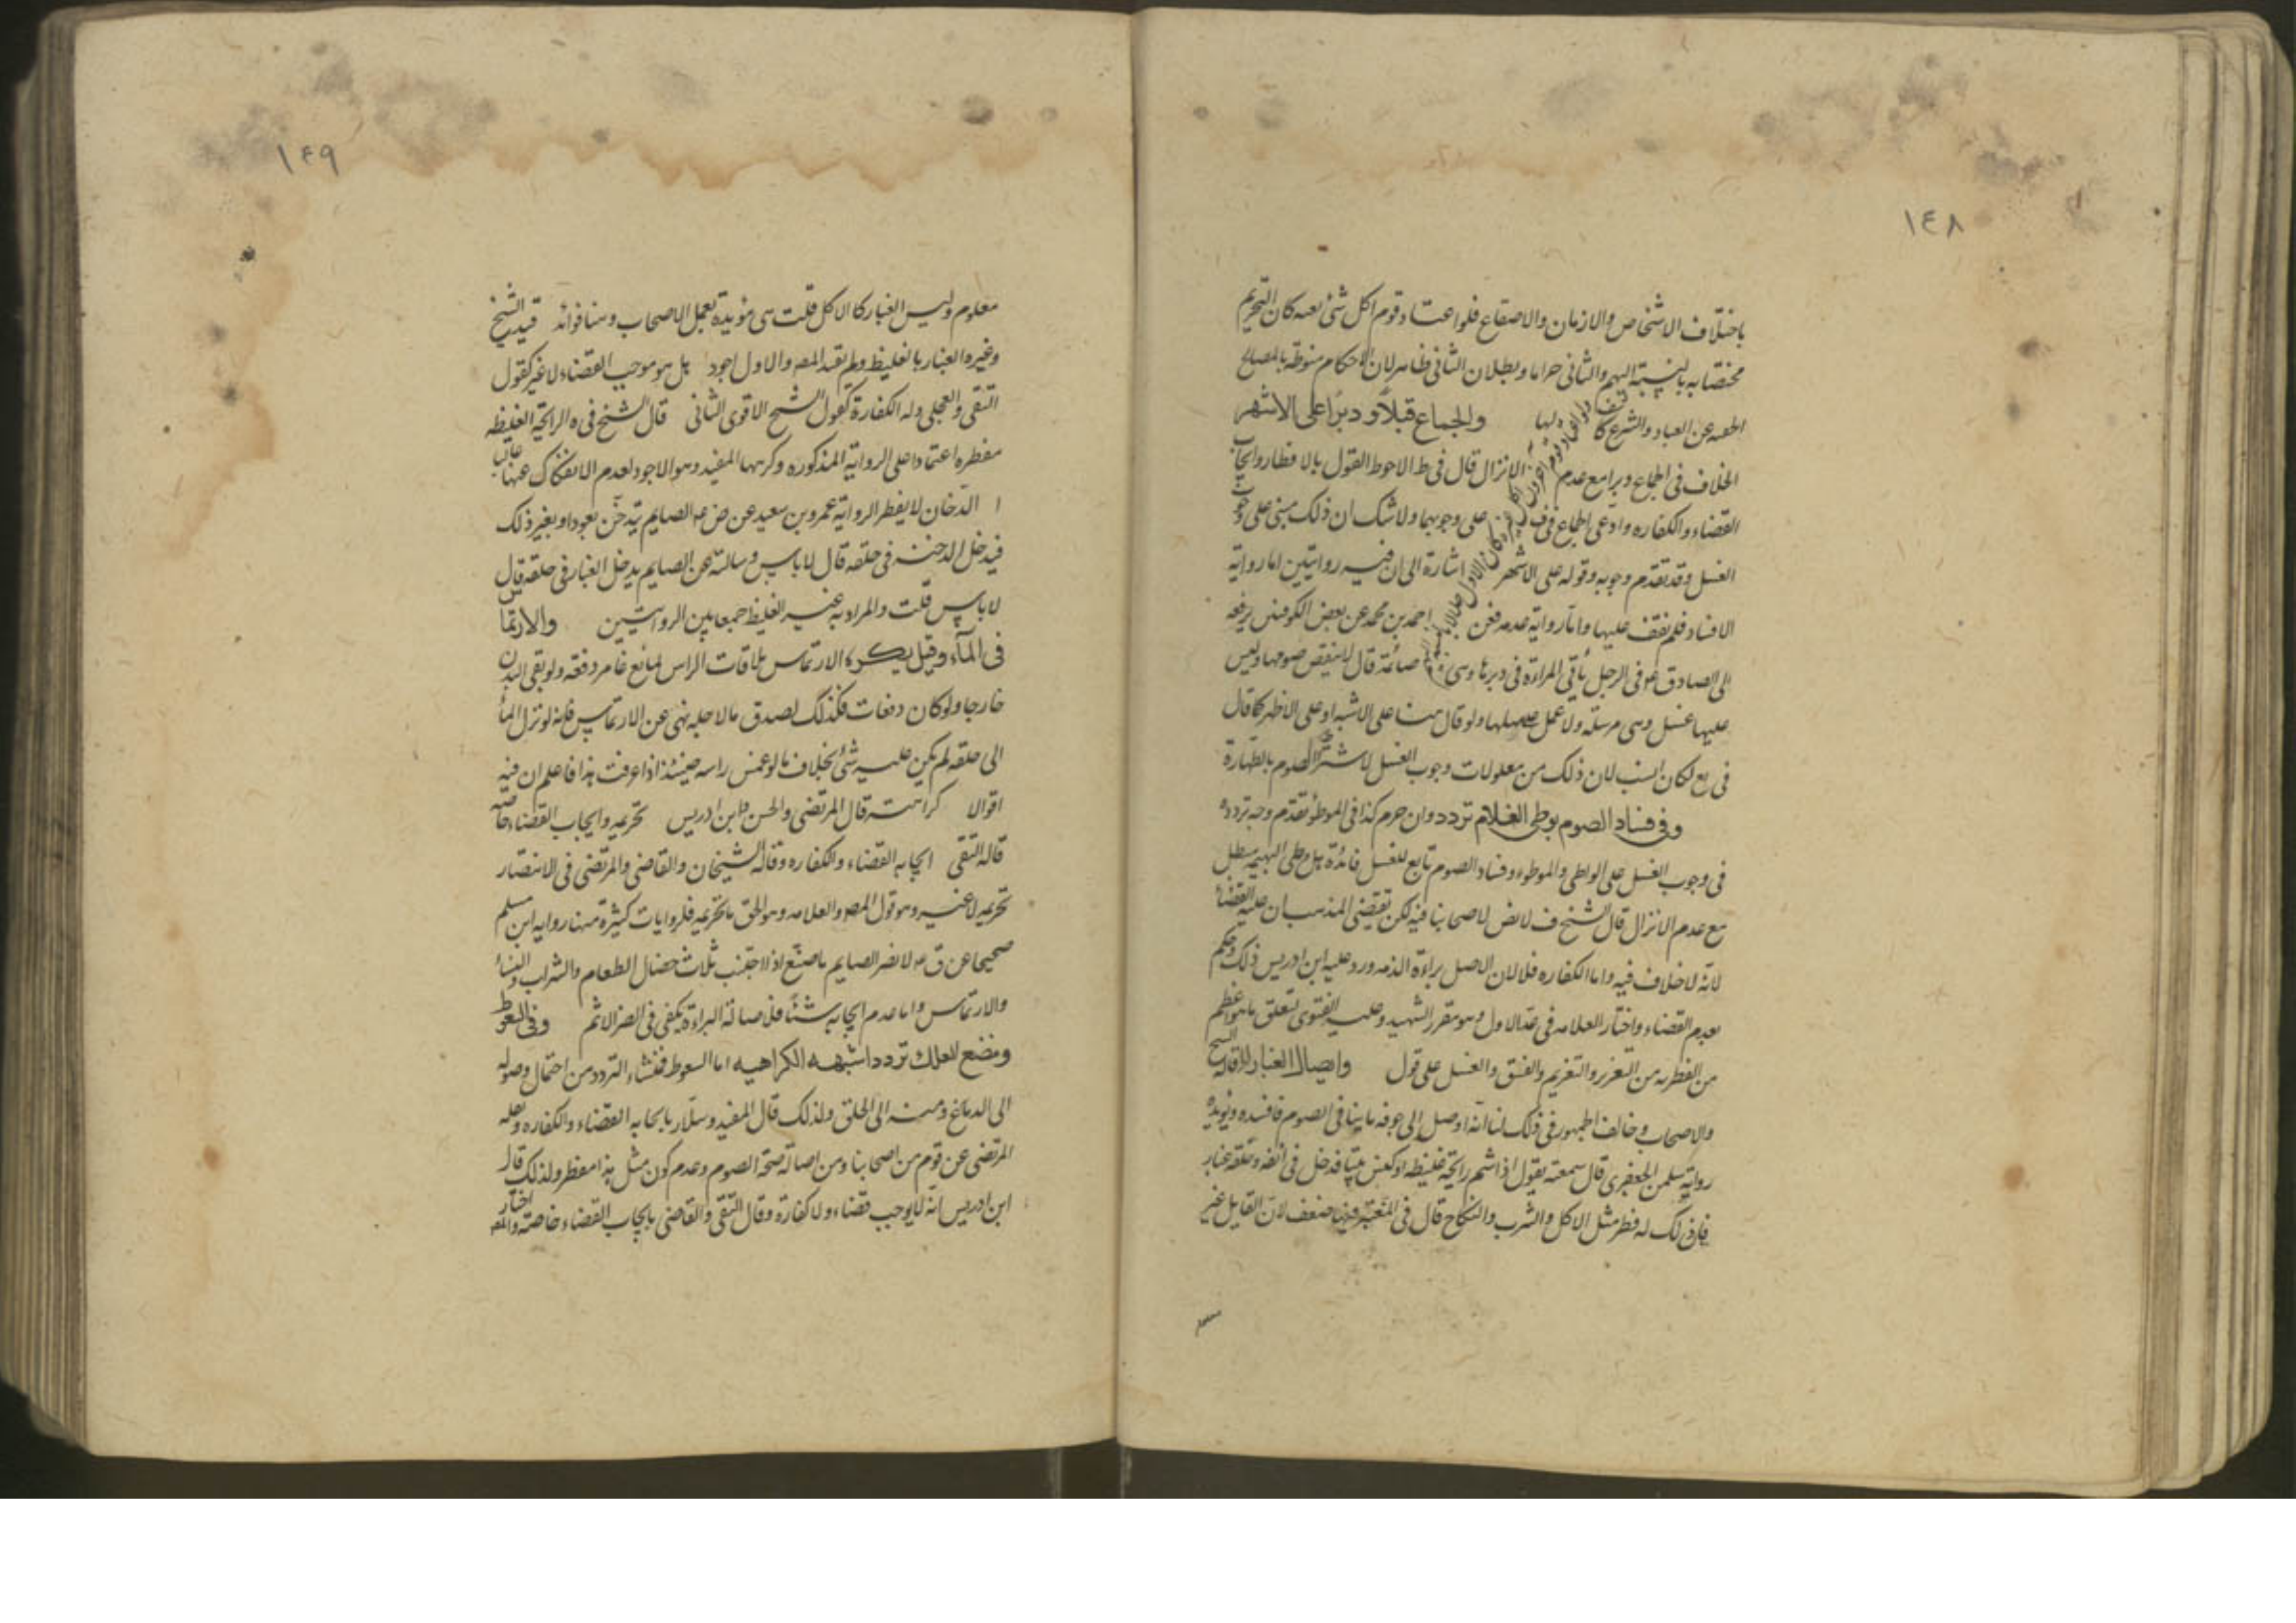 ١٤٨
باختلاف الاشخاص والازمان والاصقاع فلو اعتاد قوم اكل شئ بعينه كان التحريم
مختصا به بالنسبة اليهم والثانى حراما وبطلان الثانى ظاهر لان الاحكام منوطة بالمصالح
العباد والشرع والجماع قبلا ودبرا على الاشهر
الخلاف فى الجماع دبرا مع عدم الانزال قال فى ط الاحوط القول بالافطار وايجاب
القضاء والكفاره وادعى اجماع فى ف على وجوبهما ولا شك ان ذلك مبنى على وجوب
الغسل وقد تقدم وجوبه وقوله على الاشهر اشارة الى ان فيه روايتين اما رواية
الافساد فلم نقف عليها واما رواية عدمه فعن احمد بن محمد عن بعض الكوفيين يرفعه
الى الصادق ع فى الرجل ياتى المراة فى دبرها وهى صائمة قال لا ينقض صومها وليس
عليها غسل وهى مرسلة ولا عمل عليها ولو قال هنا على الاشبه او على الاظهر كما قال
فى يع لكان انسب لان ذلك من معلولات وجوب الغسل لاشتراط الصوم بالطهارة
وفى فساد الصوم بوطى الغلام تردد وان حرم كذا فى الموطؤ تقدم وجه تردده
فى وجوب الغسل على الواطى والموطوء وفساد الصوم تابع للغسل فائدة هل وطى البهيمه مبطل
مع عدم الانزال قال الشيخ ف لا نص لاصحابنا فيه لكن يقتضى المذهب ان عليه القضاء
لانه لا خلاف فيه واما الكفاره فلا لان الاصل براءة الذمه ورد عليه ابن ادريس ذلك وحكم
بعدم القضاء واختار العلامه فى عد الاول وهو مقرر الشهيد وعليه الفتوى لتعلق ما هو اعظم
من الفطر به من التعزير والتغريم والفسق والغسل على قول وايصال الغبار قاله الشيخ
والاصحاب وخالف الجمهور فى ذلك لنا انه اوصل الى جوفه ما ينافى الصوم فافسده ويؤيده
رواية سليمن الجعفرى قال سمعته يقول اذا شم رايحة غليظه او كنس بيتا فدخل فى انفه وحلقه غبار
فان ذلك له فطر مثل الاكل والشرب والنكاح قال فى المعتبر فيها ضعف لان القايل غير
١٤٩
معلوم وليس الغبار كالاكل قلت هى مؤيدة بعمل الاصحاب وهنا فوائد قيد الشيخ
وغيره الغبار بالغليظ ولم يقيد المصه والاول اجود هل هو موجب القضاء لا غير كقول
التقى والعجلى وله الكفارة كقول الشيخ الاقوى الثانى قال الشيخ فى الرائحة الغليظه
مفطره اعتمادا على الرواية المذكوره وكرهها المفيد وهو الاجود لعدم الانفكاك عنها غالبا
الدخان لا يفطر لرواية عمرو بن سعيد عن ض ع الصايم يتدخن بعود او بغير ذلك
فيدخل الدخنه فى حلقه قال لا باس وسالته عن الصايم يدخل الغبار فى حلقه قال
لا باس قلت والمراد به غير الغليظ جمعا بين الروايتين والارتماس
فى الماء وقيل يكره الارتماس ملاقات الراس لمائع غامر دفعه ولو بقى البدن
خارجا ولو كان دفعات فكذلك لصدق ما لاجله نهى عن الارتماس فانه لو نزل الماء
الى حلقه لم يكن عليه شئ بخلاف ما لو غمس راسه حينئذ اذا عرفت هذا فاعلم ان فيه
اقوال كراهته قال المرتضى والحسن وابن ادريس تحريمه وايجاب القضاء خاصه
قاله التقى ايجابه القضاء والكفاره وقاله الشيخان والقاضى والمرتضى فى الانتصار
تحريمه لا غير وهو قول المصه والعلامه وهو الحق ما تحريمه فلروايات كثيرة منها رواية ابن مسلم
صحيحا عن ق ع لا يضر الصايم ما صنع اذا اجتنب ثلاث خصال الطعام والشراب والنساء
والارتماس واما عدم ايجابه شئا فلاصالة البراءة ويكفى فى الضرر الاثم وفى السعوط
ومضغ العلك تردد اشبهه الكراهيه اما السعوط فمنشاء التردد من احتمال وصوله
الى الدماغ ومنه الى الحلق ولذلك قال المفيد وسلار بايجابه القضاء والكفاره ونقله
المرتضى عن قوم من اصحابنا ومن اصالة صحة الصوم وعدم كون مثل هذا مفطر ولذلك قال
ابن ادريس انه لا يوجب قضاء ولا كفارة وقال التقى والقاضى بايجاب القضاء خاصة واختار المصه